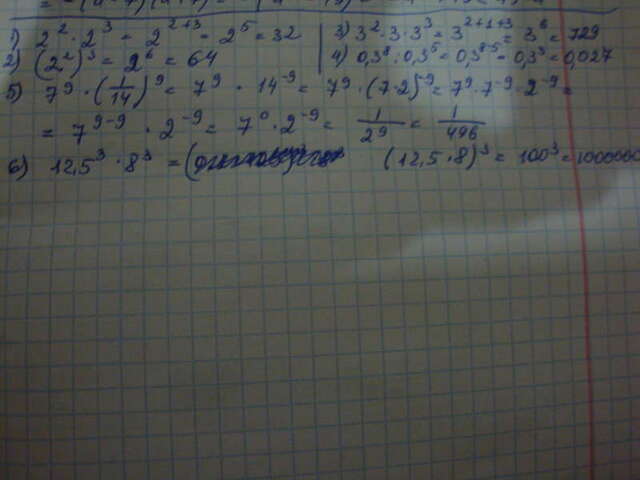 1) 2² · 2³ = 2²⁺³ = 2⁵ = 32
2) (2²)³ = 2⁶ = 64
3) 3² · 3 · 3³ = 3²⁺¹⁺³ = 3⁶ = 729
4) 0,3⁸ : 0,3⁵ = 0,3⁸⁻⁵ = 0,3³ = 0,027
5) 7⁹ · (1/14)⁹ = 7⁹ · 14⁻⁹ = 7⁹ · (7·2)⁻⁹ = 7⁹ · 7⁻⁹ · 2⁻⁹ =
= 7⁹⁻⁹ · 2⁻⁹ = 7⁰ · 2⁻⁹ = 1/2⁹ = 1/496
6) 12,5³ · 8³ = (12,5 · 8)³ = 100³ = 1000000